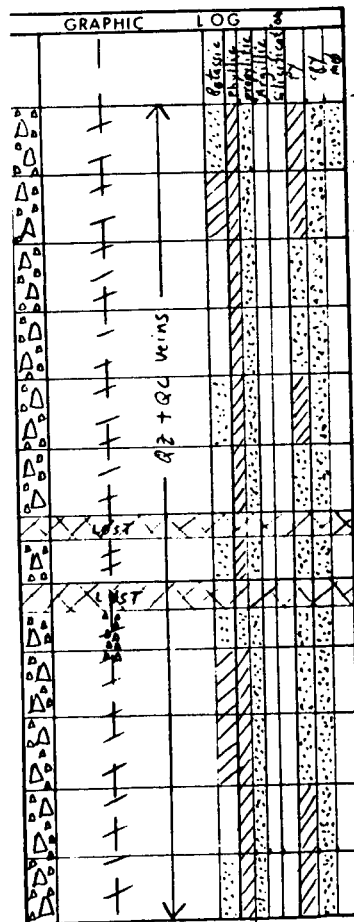 GRAPHIC LOG
Potassic
Phyllic
Propylitic
Argillic
Silicification
PY
CPY
MO
QZ + QC veins
LOST
LOST